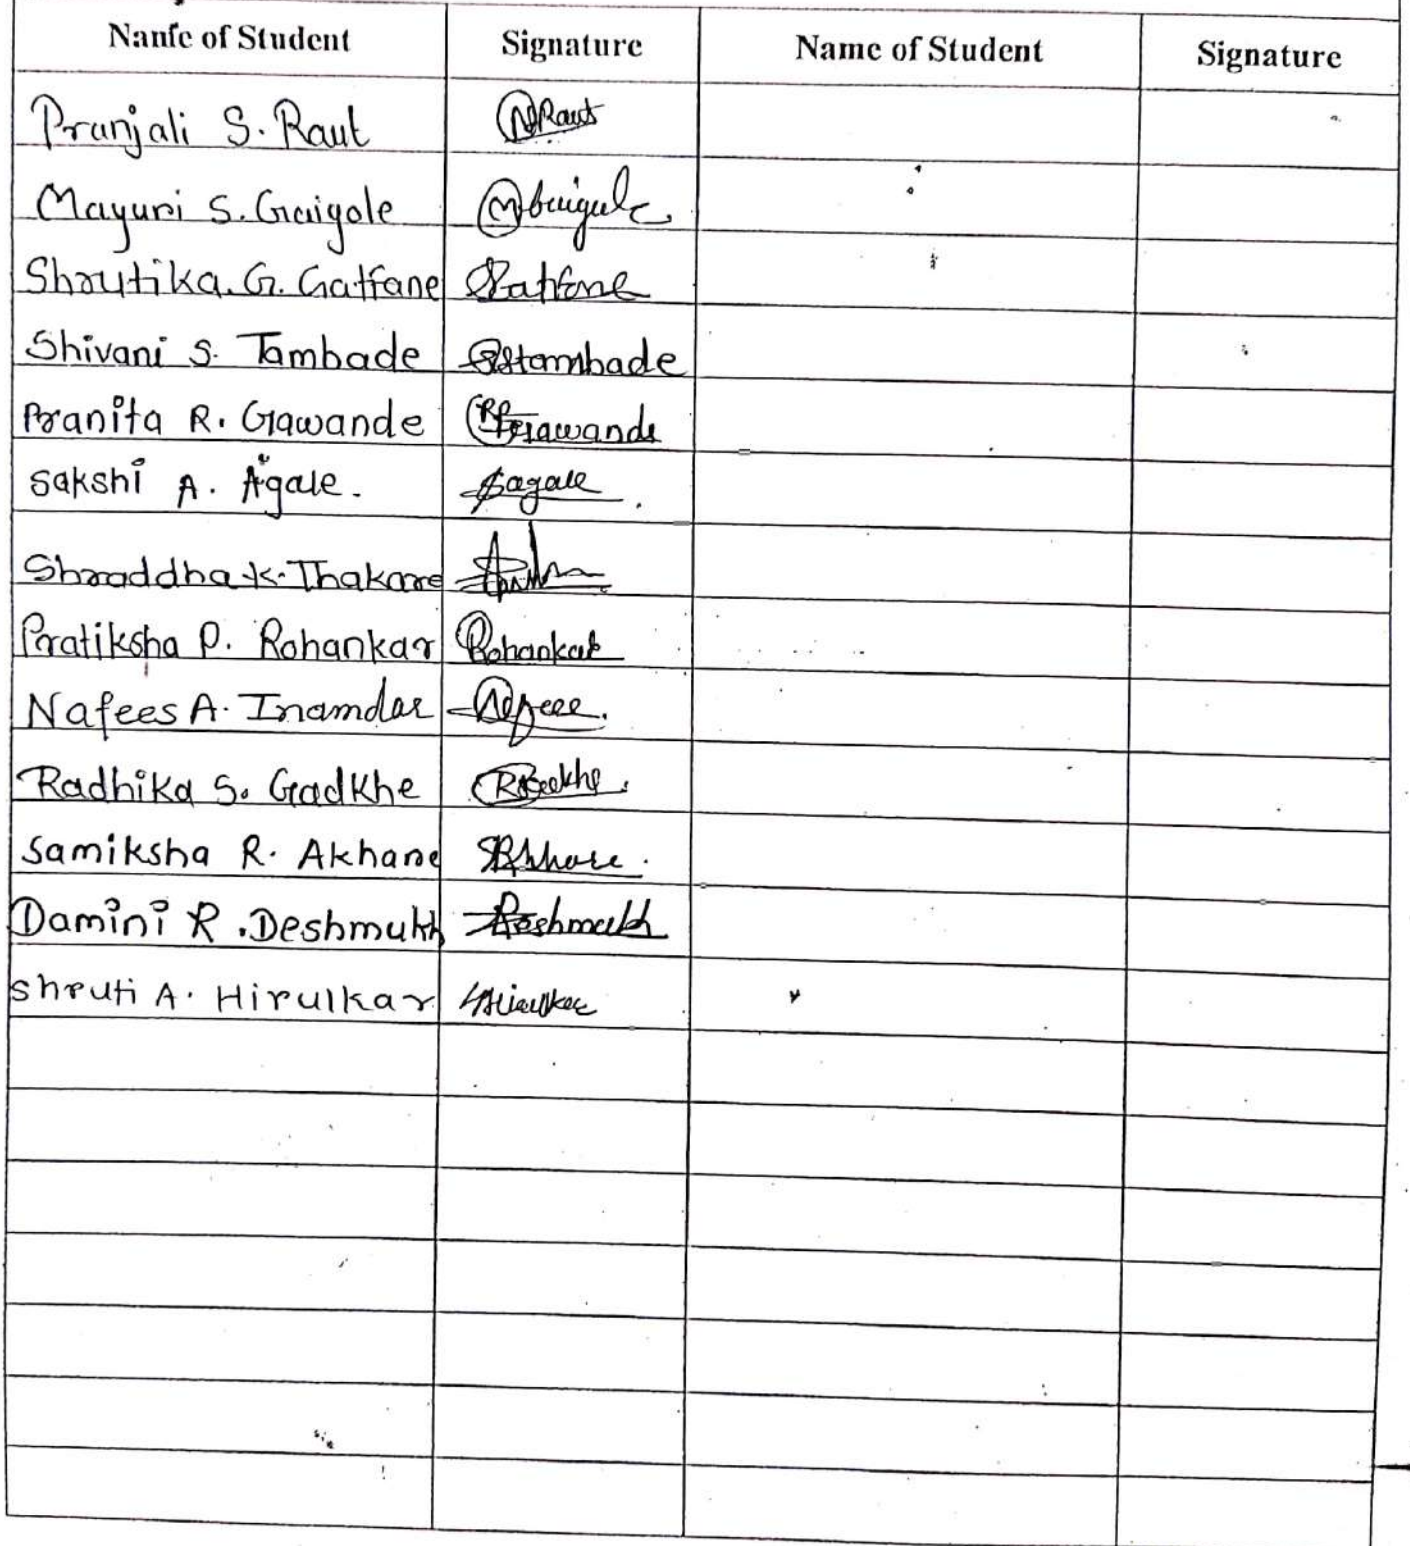 Name of Student Signature Name of Student Signature
Pranjali S. Raut PRaut
Mayuri S. Gaigole
Shrutika. G. Gatfane Gatfane
Shivani S. Tambade Stambade
Pranita R. Gawande Gawande
Sakshi A. Agale. Sagale
Shraddha K. Thakare
Pratiksha P. Rohankar Rohankar
Nafees A. Inamdar
Radhika S. Gadkhe
Samiksha R. Akhare
Damini R. Deshmukh Deshmukh
Shruti A. Hirulkar